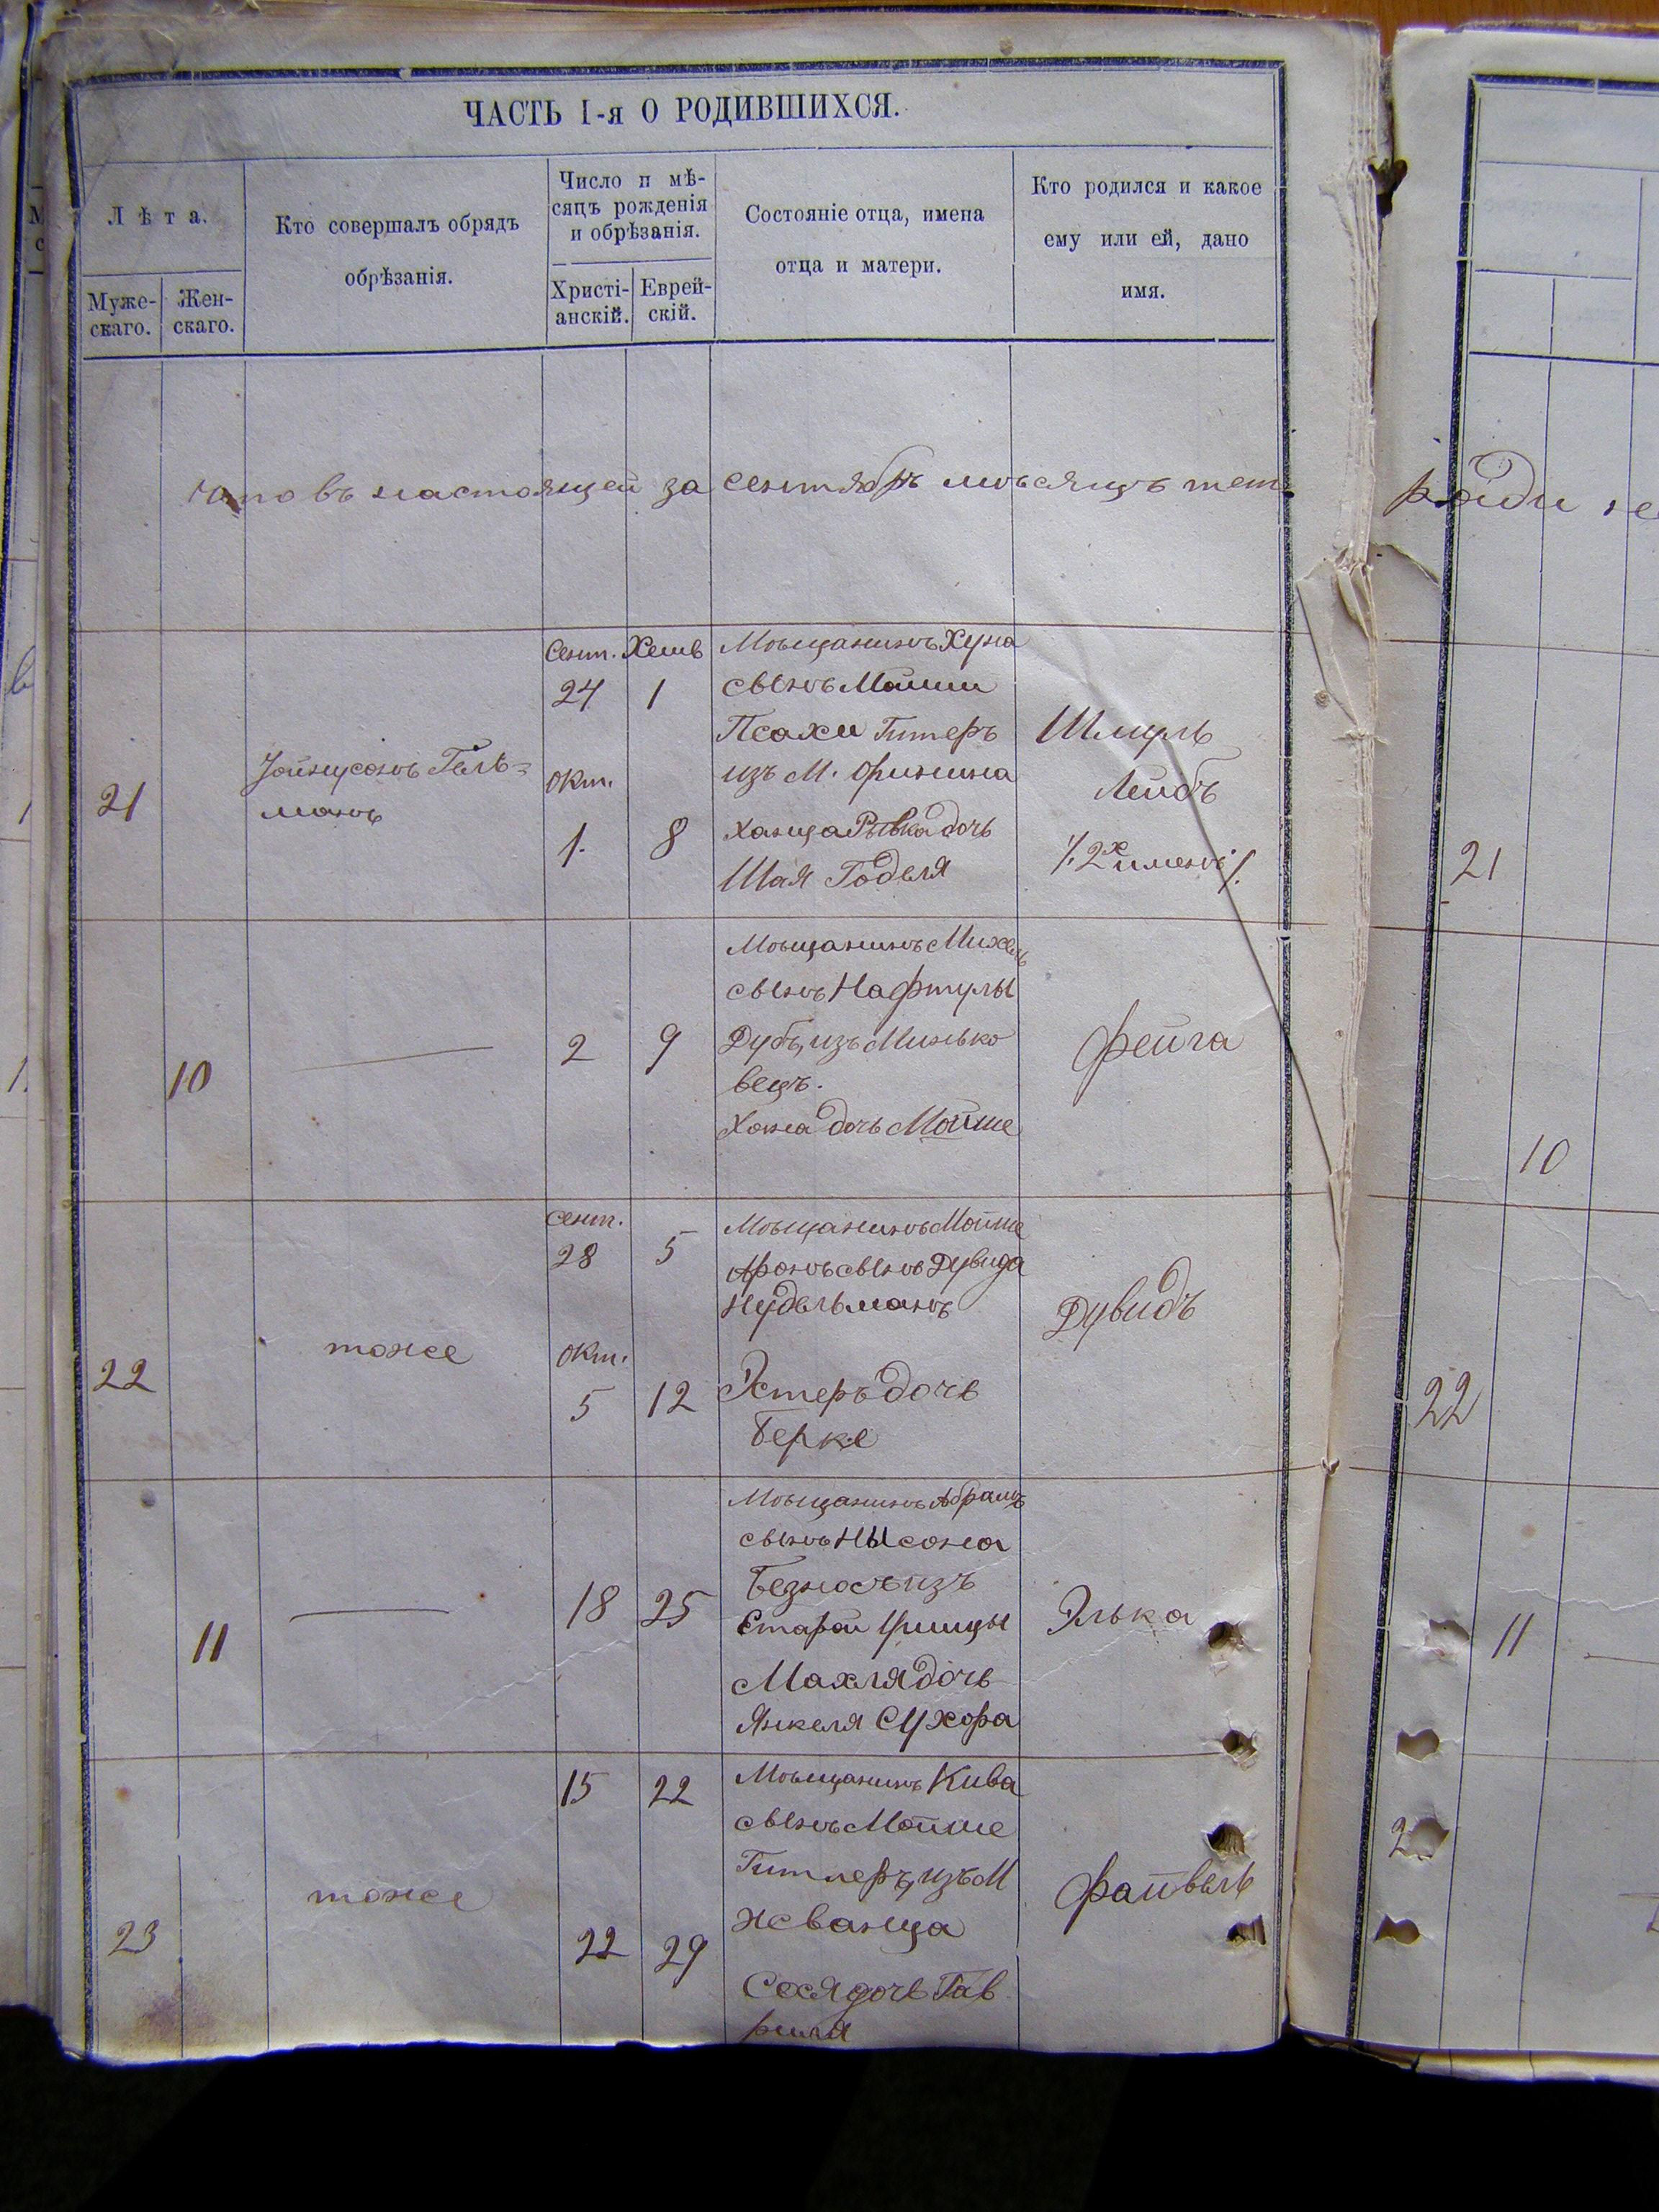 ЧАСТЬ I-я О РОДИВШИХСЯ.
Лѣта.
Муже-
скаго.
Жен-
скаго.
Кто совершалъ обрядъ
обрѣзанія.
Число и мѣ-
сяцъ рожденія
и обрѣзанія.
Христі-
анскій.
Еврей-
скій.
Состояніе отца, имена
отца и матери.
Кто родился и какое
ему или ей, дано
имя.
что въ настоящей за сентябрь мѣсяцъ тет
ради не
21
Гель=
манъ
Сент. Хешв
24 1
окт.
1. 8
Мѣщанинъ Хуна
сынъ Мошки
Псахи Гитеръ
изъ М. Оринина
Ханца Рывка дочь
Шая Годеля
Шмуль
Лейбъ
/.2х именъ/.
21
10
2 9
Мѣщанинъ Михель
сынъ Нафтулы
Дубъ, изъ Минько
вецъ.
Хона дочь Мойше
Фейга
10
22
тоже
Сент.
28 5
окт.
5 12
Мѣщанинъ Мойше
Аронъ сынъ Дувида
Нудельманъ
Эстеръ дочь
Берке
Дувидъ
22
11
18 25
Мѣщанинъ Абрамъ
сынъ Нысона
Безносъ изъ
Старой Ушицы
Махля дочь
Янкеля Сухора
Элька
11
23
тоже
15 22
22 29
Мѣщанинъ Кива
сынъ Мойше
Гитлеръ, изъ М
Жванца
Сося дочь Гав
рила
Файвель
2